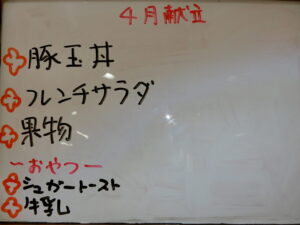 4月献立
豚玉丼
フレンチサラダ
果物
ーおやつー
シュガートースト
牛乳